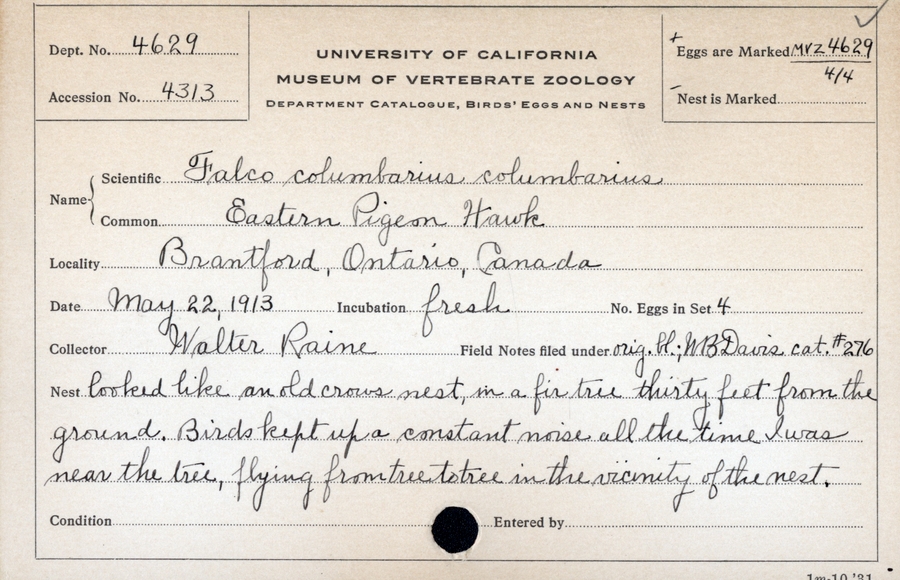 Dept. No. 4629
Accession No. 4313
UNIVERSITY OF CALIFORNIA
MUSEUM OF VERTEBRATE ZOOLOGY
DEPARTMENT CATALOGUE, BIRDS' EGGS AND NESTS
+ Eggs are Marked MVZ 4629
4/4
- Nest is Marked
Name { Scientific Falco columbarius columbarius
Common Eastern Pigeon Hawk
Locality Brantford, Ontario, Canada
Date May 22, 1913 Incubation fresh No. Eggs in Set 4
Collector Walter Raine Field Notes filed under orig. bl.; WB Davis cat. #276
Nest looked like an old crows nest, in a fir tree thirty feet from the
ground. Birds kept up a constant noise all the time I was
near the tree, flying from tree to tree in the vicinity of the nest.
Condition Entered by
1m-10-'31